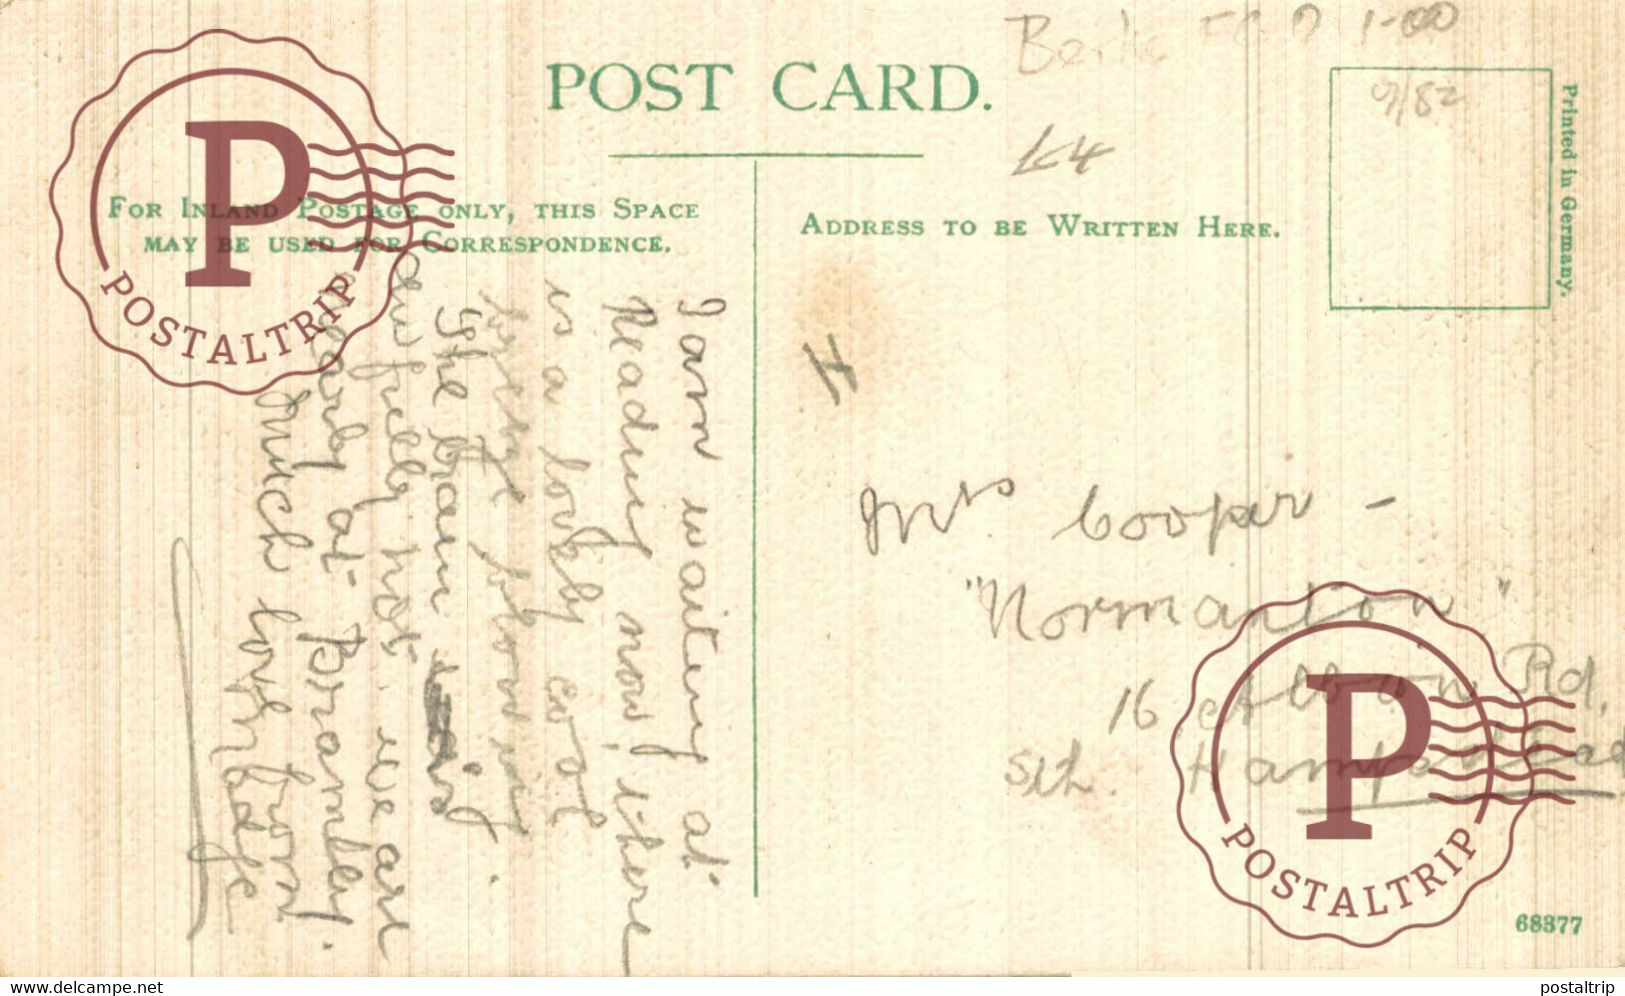 POST CARD.
FOR INLAND POSTAGE ONLY, THIS SPACE
MAY BE USED FOR CORRESPONDENCE.
ADDRESS TO BE WRITTEN HERE.
Printed in Germany.
1-00
9/82
K4
H
I am waiting at
Reading now, where
is a lovely cool
breeze blowing.
The train is
awfully hot. we are
nearly at Bramley.
Much love from
Madge
Mrs Cooper -
"Normanton"
16 Albion Rd.
Sth. Hampstead
68377
P
POSTALTRIP
P
POSTALTRIP
www.delcampe.net
postaltrip